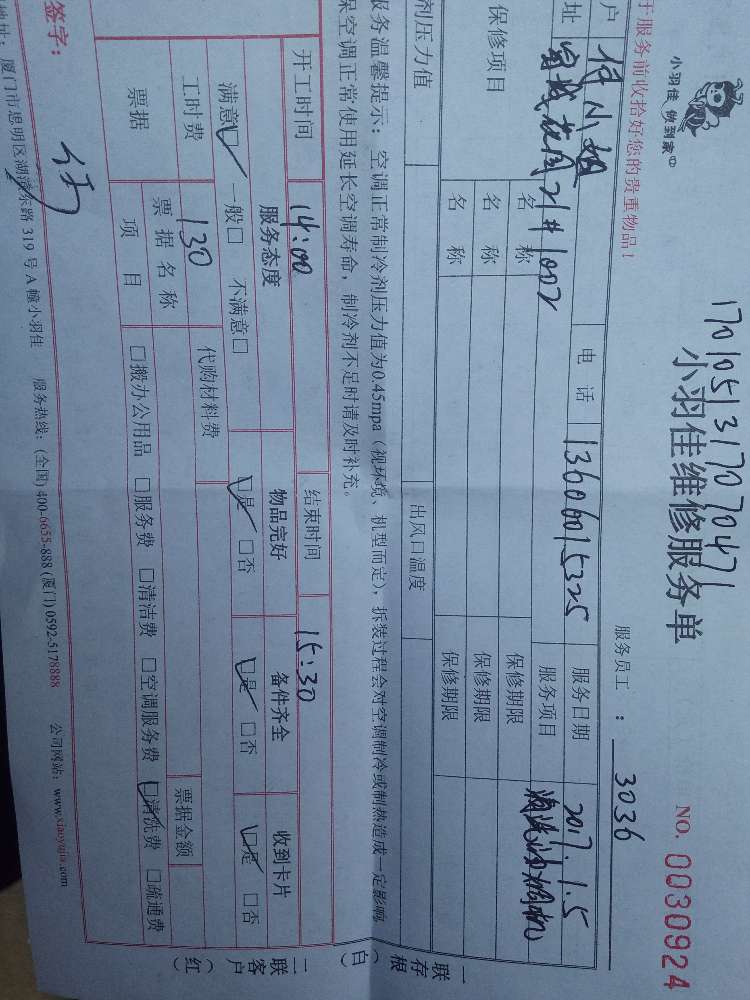 小羽佳 做到家
1701051317070471
小羽佳维修服务单
NO. 0030924
于服务前收拾好您的贵重物品！
服务员工：3036
户 付小姐 电话 13606015325 服务日期 2017.1.5
址 21#1002 服务项目
保修项目 名称 保修期限
名称 保修期限
名称 保修期限
剂压力值 出风口温度
服务温馨提示：空调正常制冷剂压力值为0.45mpa（视环境、机型而定），拆装过程会对空调制冷或制热造成一定影响
保空调正常使用延长空调寿命，制冷剂不足时请及时补充。
一存根（白）联
开工时间 14:00 结束时间 15:30
服务态度 物品完好 备件齐全 收到卡片
满意☑ 一般□ 不满意□ ☑是 □否 ☑是 □否 ☑是 □否
工时费 130 代购材料费
票据 票据名称 票据金额
项目 □搬办公用品 □服务费 □清洁费 □空调服务费 ☑清洗费 □疏通费
二客户（红）联
签字：付
地址：厦门市思明区湖滨东路319号A幢小羽佳 服务热线：(全国) 400-6655-888 (厦门) 0592-5178888 公司网站：www.xiaoyujia.com